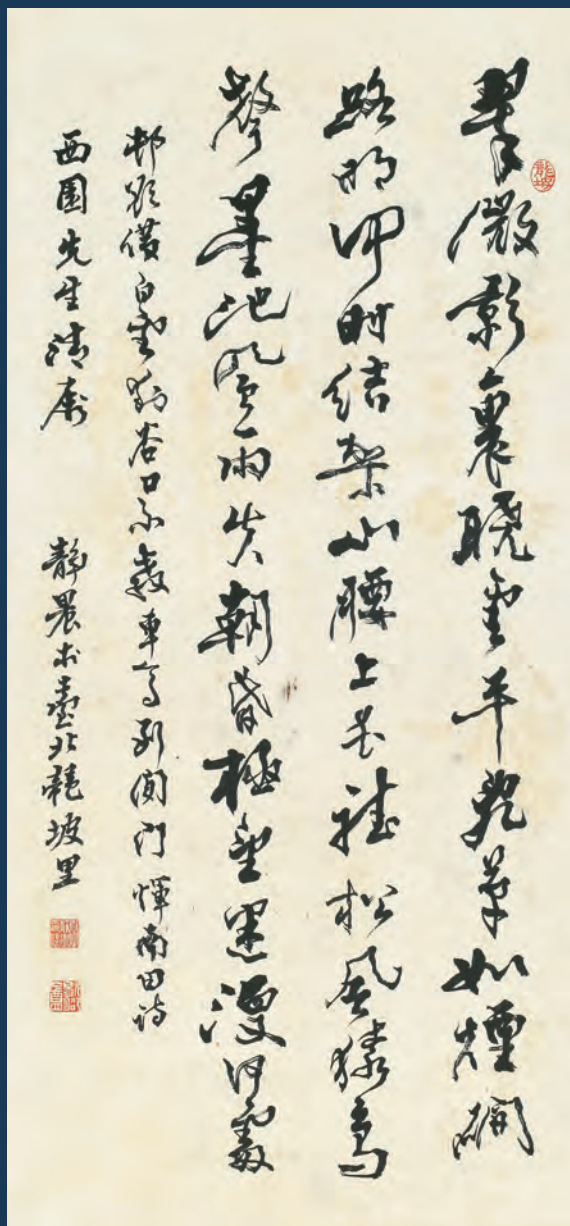 翠微影裏曉雲平亂草如煙礀
路明何時結架山腰上聽松風猿鳥
聲墨池風雨失朝昏極望漫何處
村欲借白雲封谷口不教車馬到閒門 惲南田詩
西園先生清屬 靜農於臺北龍坡里
龍坡